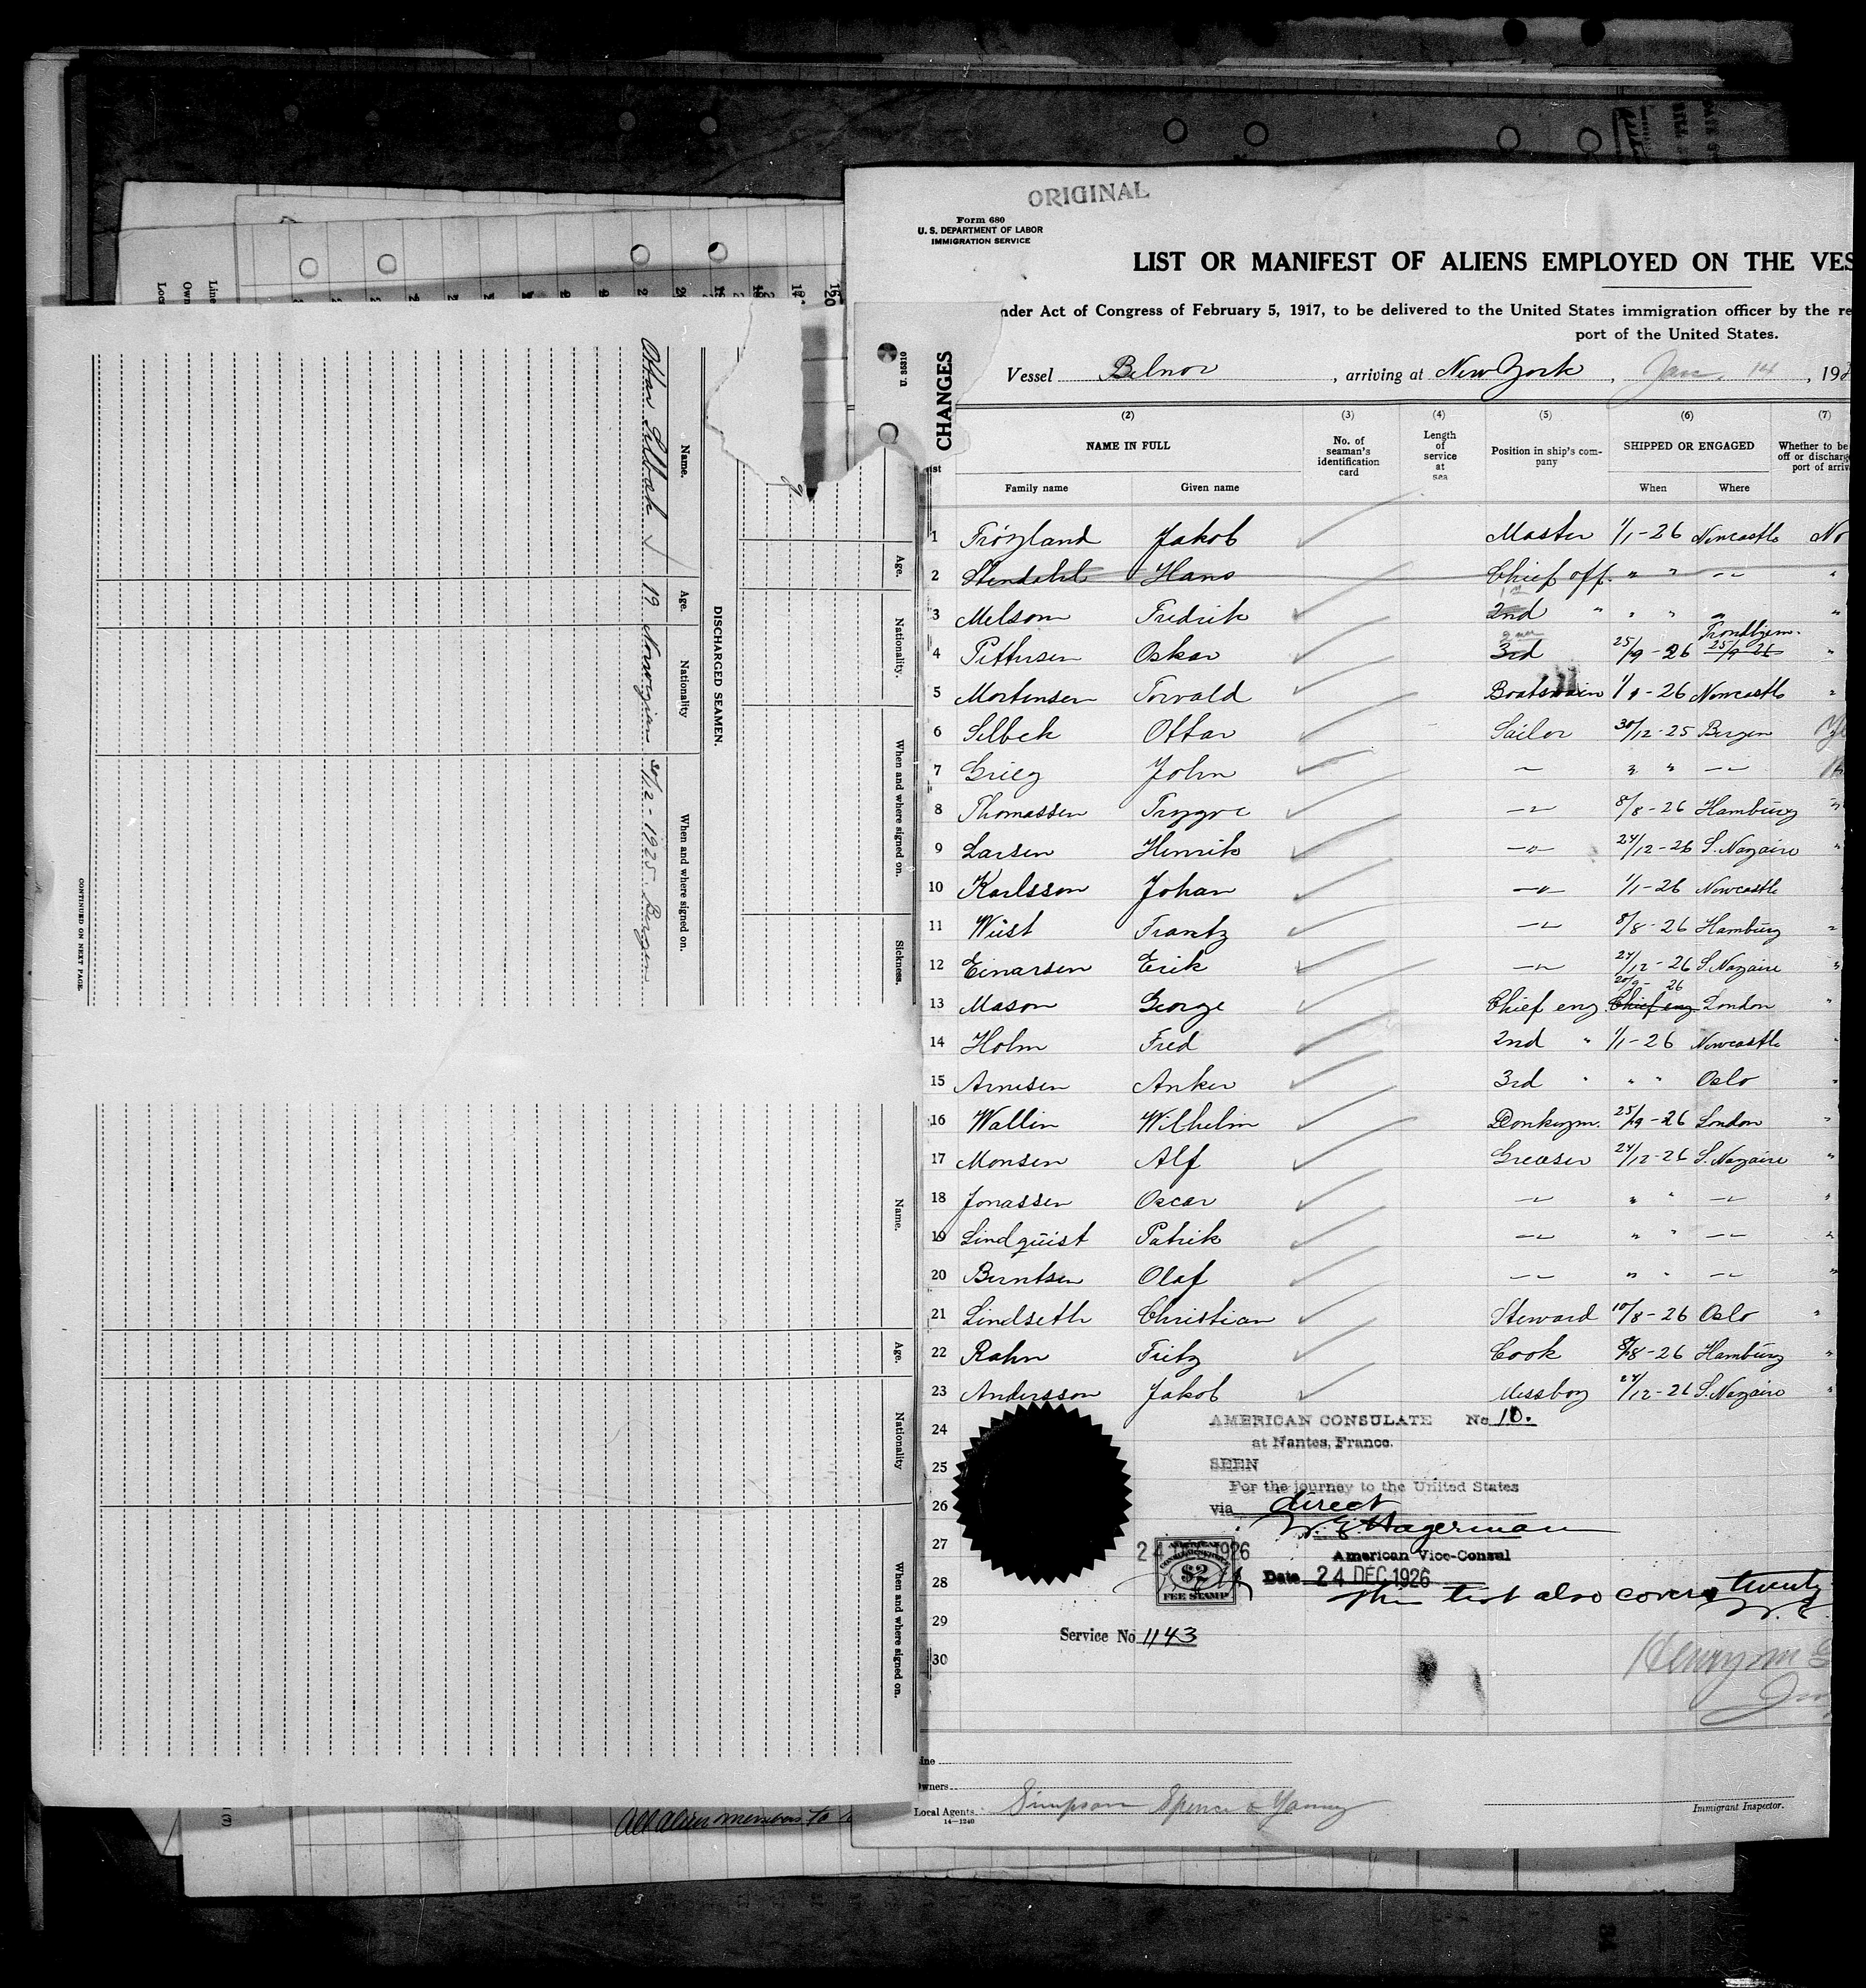 ORIGINAL
Form 680
U. S. DEPARTMENT OF LABOR
IMMIGRATION SERVICE
LIST OR MANIFEST OF ALIENS EMPLOYED ON THE VES
nder Act of Congress of February 5, 1917, to be delivered to the United States immigration officer by the re
port of the United States.
CHANGES
U. 35310
Vessel Belnor , arriving at New York , Jan. 14 , 192
(2) (3) (4) (5) (6) (7)
NAME IN FULL No. of seaman's identification card Length of service at sea Position in ship's company SHIPPED OR ENGAGED Whether to be
off or discharg
port of arriv
Family name Given name When Where
1 Fröyland Jakob Master 1/1-26 Newcastle No
2 Stendahl Hans Chief off. " " -"-
3 Melsom Fredrik 2nd " " " "
Trondhjem.
4 Pettersen Oskar 3rd 25/9-26 25/9 26 "
5 Mortensen Torvald Boatswain 1/1-26 Newcastle "
6 Selbek Ottar Sailor 30/12-25 Bergen
7 Grieg John -"- " " -"-
8 Thomassen Trygve -"- 8/8-26 Hamburg "
9 Larsen Henrik -"- 24/12-26 S. Nazaire "
10 Karlsson Johan -"- 1/1-26 Newcastle
11 Wüst Frantz -"- 8/8-26 Hamburg "
12 Einarsen Erik -"- 24/12-26 S. Nazaire "
20/9-26
13 Mason George Chief eng. Chief eng London "
14 Holm Fred 2nd " 1/1-26 Newcastle "
15 Arnesen Anker 3rd " " " Oslo "
16 Wallin Wilhelm Donkeym. 25/9-26 London "
17 Monsen Alf Greaser 24/12-26 S. Nazaire "
18 Jonassen Oscar -"- " " -"- "
19 Lindquist Patrik -"- " " -"- "
20 Berntsen Olaf -"- " " -"- "
21 Lindseth Christian Steward 10/8-26 Oslo "
22 Rahn Fritz Cook 8/8-26 Hamburg "
23 Andersson Jakob Messboy 24/12-26 S. Nazaire "
24
25
26
27
28
29
30
AMERICAN CONSULATE No 10.
at Nantes, France.
SEEN
For the journey to the United States
via direct
W. E. Hagerman
American Vice-Consul
24 DEC 1926
Date 24 DEC 1926
$2
FEE STAMP
This list also covers twenty
Service No 1143
ine
wners
Local Agents. Simpson Spence & Young
14—1240
Immigrant Inspector.
DISCHARGED SEAMEN.
Name. Age. Nationality When and where signed on.
Ottar Selbek 19 Norwegian 30/12-1925 Bergen
Age. Nationality. When and where signed on. Sickness.
Name. Age. Nationality When and where signed on.
CONTINUED ON NEXT PAGE.
All alien members to